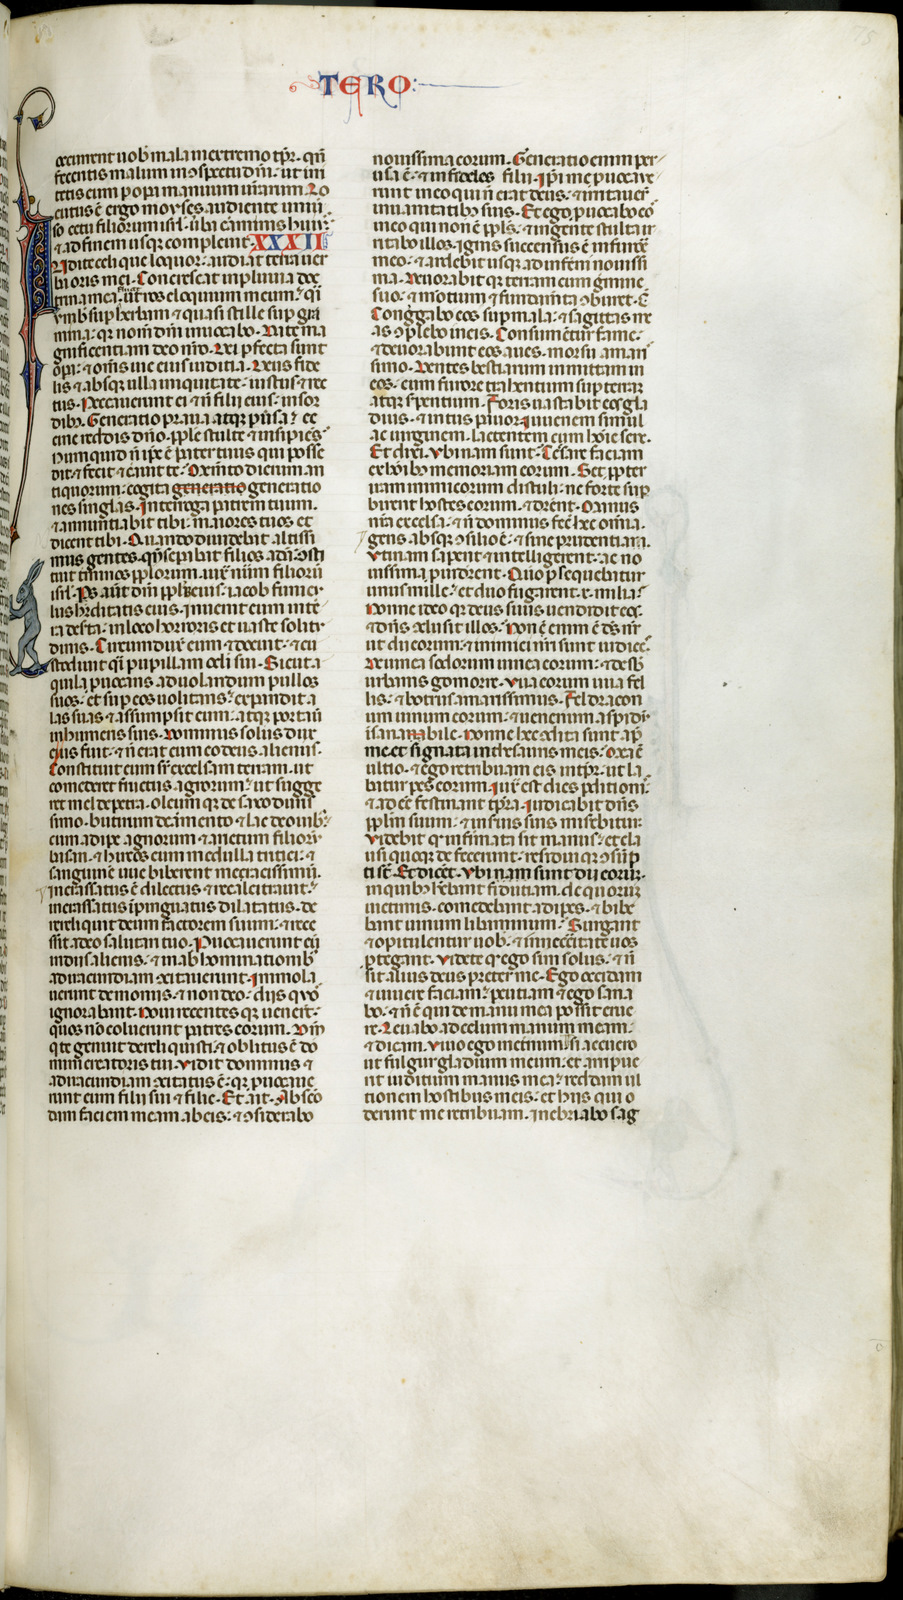 TERO
occurrent uob̄ mala in extremo tp̄r. qn̄
feceritis malum in ɔspectu dn̄i. ut irri
tetis eum p opa manuum urarum. Lo
cutus ē ergo moyses audiente uniu̅
so cetu filiorum isrl. ūba carminis huiꝰ
⁊ ad finem usqꝫ compleuit. XXXII
Audite celi que loquor. audiat terra uer
ba oris mei. Concrescat in pluuia doc
trina mea. fluat ut ros eloquium meum. q̄i
ymb̄ sup herbam ⁊ quasi stille sup gra
mina. qꝛ nom̄ dn̄i inuocabo. Date ma
gnificentiam deo nr̄o. Dei pfecta sunt
opa. ⁊ om̄s uie eius iuditia. Deus fide
lis ⁊ absqꝫ ulla iniquitate. iustus ⁊ rec
tus. Peccauerunt ei ⁊ n̄ filii eius. in sor
dibꝫ. Generatio praua atqꝫ puersa. hec
cine reddis dn̄o. pple stulte ⁊ insipiēs
Numquid n̄ ipe ē pater tuus qui posse
dit. ⁊ fecit ⁊ creauit te. Memento dierum an
tiquorum. cogita generatio generatio
nes singlas. Interroga patrem tuum.
⁊ annuntiabit tibi. maiores tuos et
dicent tibi. Quando diuidebat altissi
mus gentes. qn̄ separabat filios adā. ɔsti
tuit t̄minos pplorum. iux̄ num̄ filiorū
isrl. Ps aūt dn̄i ppls eius. iacob funicu
lus hr̄editatis eius. Inuenit eum in t̄e
ra desta. in loco horroris et uaste solitu
dinis. Circumdux̄ eum ⁊ docuit. ⁊ cu
stodiuit q̄i pupillam oculi sui. Sicut a
quila puocans ad uolandum pullos
suos. et sup eos uolitans. expandit a
las suas ⁊ assumpsit eum. atqꝫ portauit
in humeris suis. Dominus solus dux
eius fuit. ⁊ n̄ erat cum eo deus alienus.
Constituit eum sr̄ excelsam terram. ut
comederet fructus agrorum. ut sugge
ret mel de petra. oleum qꝫ de saxo duris
simo. butirum de armento ⁊ lac de ouibꝫ.
cum adipe agnorum ⁊ arietum filiorū
basan. ⁊ hircos cum medulla tritici. ⁊
sanguinē uue biberent meracissimū.
Incrassatus ē dilectus ⁊ recalcitrauit.
incrassatus īpinguatus dilatatus. de
reliquit deum factorem suum. ⁊ rece
ssit a deo salutari suo. Puocauerunt eū
in diis alienis. ⁊ in abhominationibꝫ
ad iracundiam xcitauerunt. Immola
uerunt demoniis. ⁊ non deo. diis quos
ignorabant. Noui recentes qꝫ uenerūt.
quos nō coluerunt patres eorum. Dm̄
qui te genuit dereliquisti. ⁊ oblitus ē do
mini creatoris tui. Vidit dominus ⁊
ad iracundiam xcitatus ē. qꝛ puocaue
runt eum filii sui ⁊ filie. Et ait. Absco
dam faciem meam ab eis. ⁊ ɔsiderabo
nouissima eorum. Generatio enim per
uersa ē. ⁊ infideles filii. Ipi me puocaue
runt in eo qui n̄ erat deus. ⁊ irritauer̄
in uanitatibꝫ suis. Et ego puocabo eos
in eo qui non ē ppls. ⁊ in gente stulta ir
ritabo illos. Ignis succensus ē in furore
meo. ⁊ ardebit usqꝫ ad inferni nouissi
ma. Deuorabit qꝫ terram cum gimine
suo. ⁊ motium ⁊ fundamta ɔburet.
Congregabo eos sup mala. ⁊ sagittas me
as ɔplebo in eis. Consumentur fame.
⁊ deuorabunt eos aues. morsu amari
simo. Dentes bestiarum inmittam in
eos. cum furore trahentium sup terram
atqꝫ serpentium. Foris uastabit eos gla
dius. ⁊ intus pauor. iuuenem simul
ac uirginem. lactentem cum hoīe sene.
Et dixi. Vbinam sunt. Cessare faciam
ex hoībꝫ memoriam eorum. Set ppter
iram inimicorum distuli. ne forte sup
birent hostes eorum. ⁊ dicerent. Manus
nr̄a excelsa. ⁊ n̄ dominus fecit hec omīa.
gens absqꝫ ɔsilio ē. ⁊ sine prudentia.
Vtinam saperent ⁊ intelligerent. ac no
uissima puiderent. Quo p sequebatur
unus mille. et duo fugarent .x. milia.
Nonne ideo qꝛ deus suus uendidit eos.
⁊ dn̄s xclusit illos. Non ē enim ē ds̄ nr̄
ut dii eorum. ⁊ inimici nr̄i sunt iudices.
De uinea sodomorum uinea eorum. ⁊ de sub
urbanis gomorre. Vua eorum uua fel
lis. ⁊ botrus amarissimus. Fel dracon
um uinum eorum. ⁊ uenenum aspidū
insanabile. Nonne hec ɔdita sunt apud
me. et signata in thesauris meis. Mea ē
ultio. ⁊ ego retribuam eis in tp̄r. ut la
batur pes eorum. Iux̄ est dies pditionis.
⁊ adee̅ festinant tp̄ra. Iudicabit dn̄s
pplm suum. ⁊ in suis suis miserebitur.
Videbit qꝫ infirmata sit manus. et cla
usi quoqꝫ defecerunt. residui qꝫ ɔsūp
ti st̄. Et dicet. Vbi nam sunt dii eorum.
in quibꝫ hēbant fidutiam. de quorum
uictimis. comedebant adipes. ⁊ bibe
bant uinum libaminum. Surgant
⁊ opitulentur uob. ⁊ in necessitate uos
ptegant. Videte qꝫ ego sim solus. ⁊ n̄
sit alius deus preter me. Ego occidam
⁊ uiuere faciam. pcutiam ⁊ ego sana
bo. ⁊ n̄ ē qui de manu mea possit erue
re. Leuabo ad celum manum meam.
⁊ dicam. Viuo ego in eternum. Si acuero
ut fulgur gladium meum. et arripue
rit iuditium manus mea. reddam ul
tionem hostibus meis. et hiis qui o
derunt me retribuam. Inebriabo sag